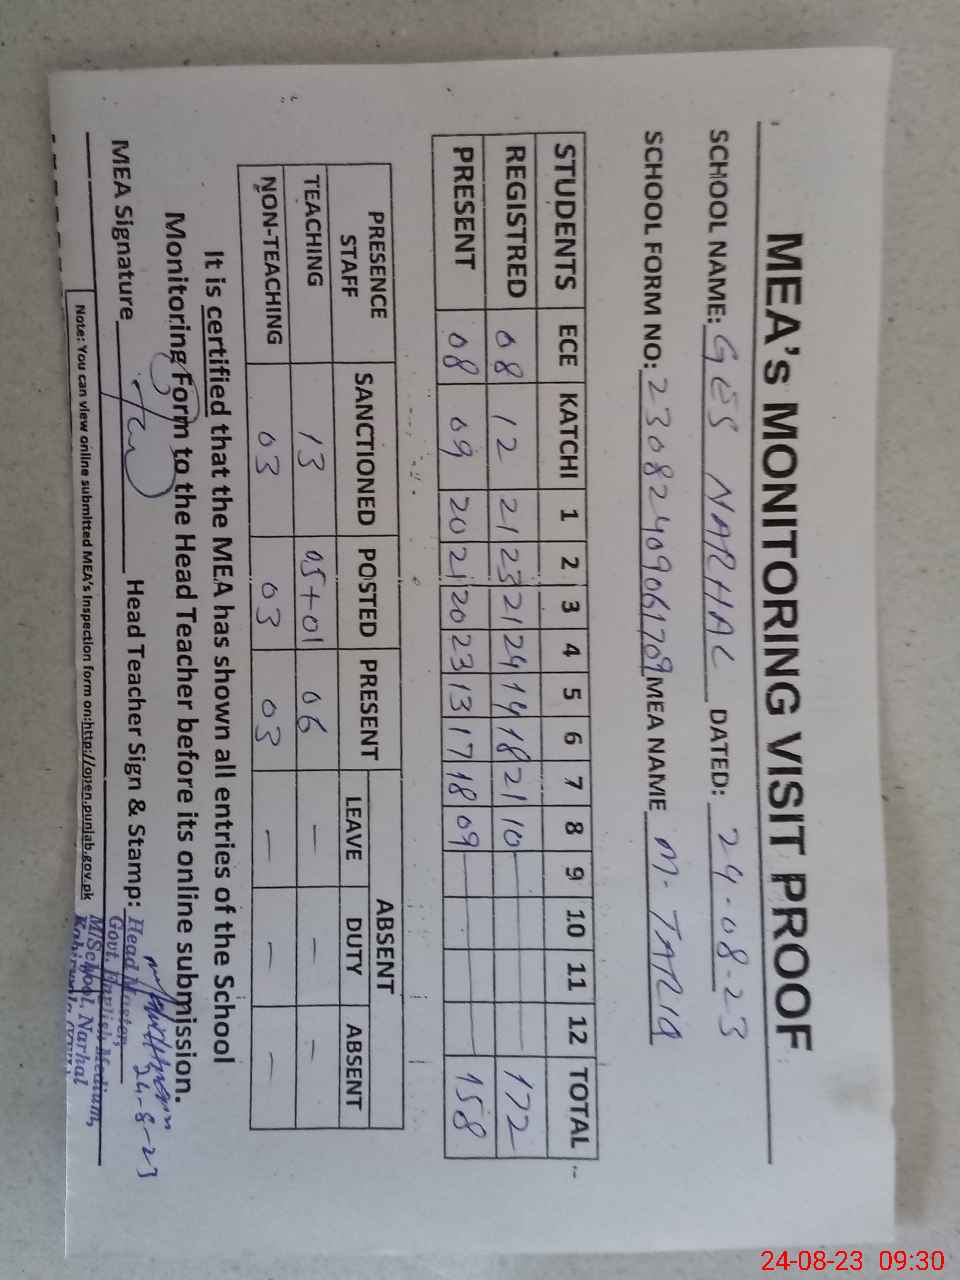 MEA's MONITORING VISIT PROOF
SCHOOL NAME: GES NARHAL DATED: 24-08-23
SCHOOL FORM NO: 23082409061709 MEA NAME M. TARIQ
STUDENTS ECE KATCHI 1 2 3 4 5 6 7 8 9 10 11 12 TOTAL
REGISTRED 08 12 21 23 21 24 14 18 21 10 172
PRESENT 08 09 20 21 20 23 13 17 18 09 158
PRESENCE STAFF SANCTIONED POSTED PRESENT ABSENT
LEAVE DUTY ABSENT
TEACHING 13 05+01 06 — — —
NON-TEACHING 03 03 03 — — —
It is certified that the MEA has shown all entries of the School
Monitoring Form to the Head Teacher before its online submission.
MEA Signature Head Teacher Sign & Stamp:
24-8-23
Head Master,
Govt. English Medium,
M/School, Narhal
Note: You can view online submitted MEA's Inspection form on:http://open.punjab.gov.pk
24-08-23 09:30